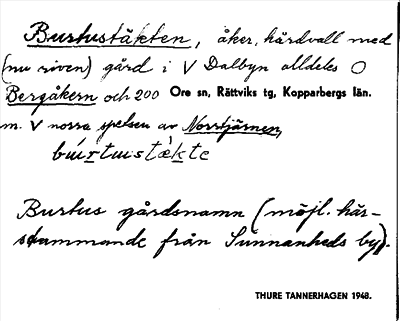 Burtustäkten, åker, hårdvall med
(nu riven) gård i V Dalbyn alldeles O
Bergåkern och 200 Ore sn, Rättviks tg, Kopparbergs län.
m. V norra spetsen av Norrtjärnen,
bu̇rtustäkte
Burtus gårdsnamn (möjl. här-
stammande från Sunnanheds by).
THURE TANNERHAGEN 1948.